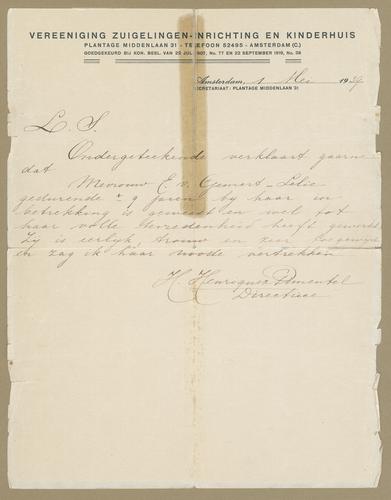 VEREENIGING ZUIGELINGEN-INRICHTING EN KINDERHUIS
PLANTAGE MIDDENLAAN 31 - TELEFOON 52495 - AMSTERDAM (C.)
GOEDGEKEURD BIJ KON. BESL. VAN 22 JULI 1907, No. 77 EN 22 SEPTEMBER 1919, No. 38
Amsterdam, 1 Mei 1934
SECRETARIAAT: PLANTAGE MIDDENLAAN 31
L. S.
Ondergeteekende verklaart gaarne
dat
Mevrouw E. v. Gemert-Lelie
gedurende ± 9 jaren by haar in
betrekking is geweest en wel tot
haar volle tevredenheid heeft gewerkt.
Zij is eerlyk, trouw en zeer toegewyd
en zag ik haar noode vertrekken
H. Henriquez Pimentel
Directrice